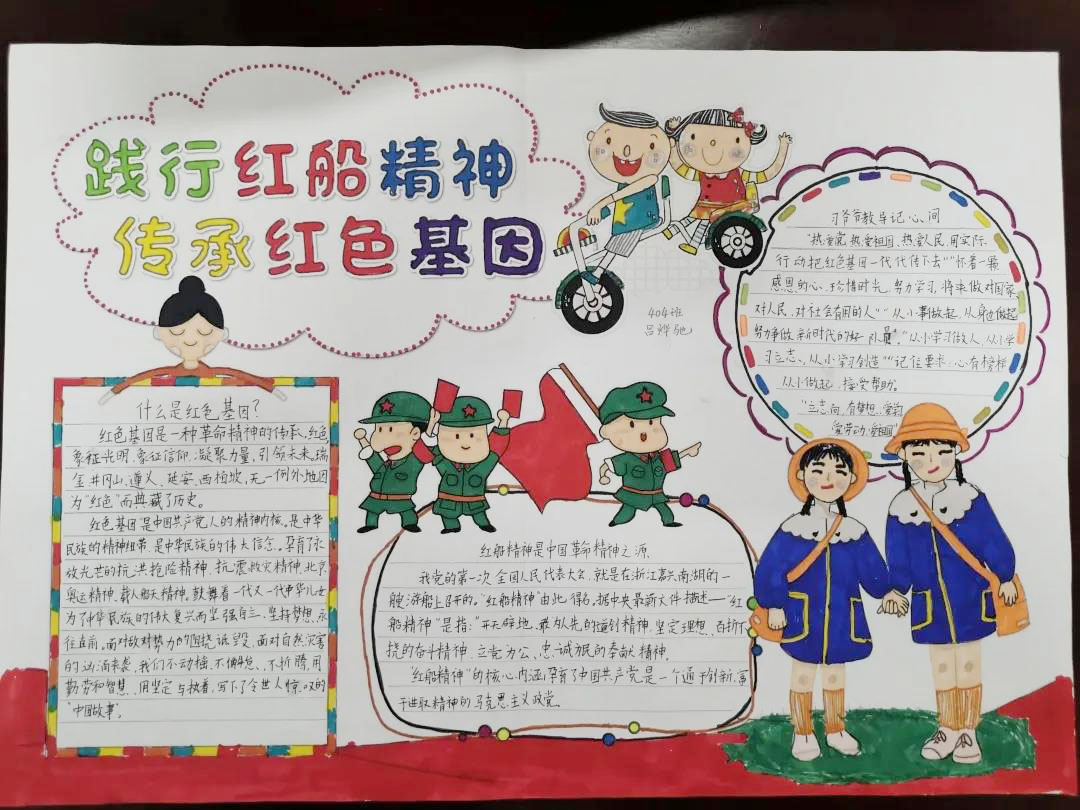 践行红船精神
传承红色基因
404班
吕烨驰
习爷爷教导记心间
"热爱党、热爱祖国、热爱人民,用实际
行动把红色基因一代代传下去""怀着一颗
感恩的心、珍惜时光,努力学习,将来做对国家、
对人民、对社会有用的人""从小事做起,从身边做起
努力争做新时代的好队员""从小学习做人,从小学
习立志、从小学习创造""记住要求、心有榜样
从小做起、接受帮助。
"立志向、有梦想、爱学
爱劳动、爱祖国"
什么是红色基因?
红色基因是一种革命精神的传承,红色
象征光明,象征信仰,凝聚力量,引领未来。瑞
金、井冈山、遵义、延安、西柏坡,无一例外地因
为"红色"而典藏了历史。
红色基因是中国共产党人的精神内核。是中华
民族的精神纽带,是中华民族的伟大信念。孕育了永
放光芒的抗洪抢险精神、抗震救灾精神、北京
奥运精神、载人航天精神。鼓舞着一代又一代中华儿女
为了中华民族的伟大复兴而坚强自立、坚持梦想、永
往直前。面对敌对势力的围挠诋毁,面对自然灾害
的汹涌来袭,我们不动摇、不懈怠、不折腾,用
勤劳和智慧、用坚定与执着,写下了令世人惊叹的
"中国故事"。
红船精神是中国革命精神之源
我党的第一次全国人民代表大会,就是在浙江嘉兴南湖的一
艘游船上召开的。"红船精神"由此得名,据中央最新文件描述——"红
船精神"是指:"开天辟地、敢为人先的首创精神,坚定理想、百折不
挠的奋斗精神,立党为公、忠诚为民的奉献精神。
"红船精神"的核心内涵,孕育了中国共产党是一个通于创新,富
于进取精神的马克思主义政党。